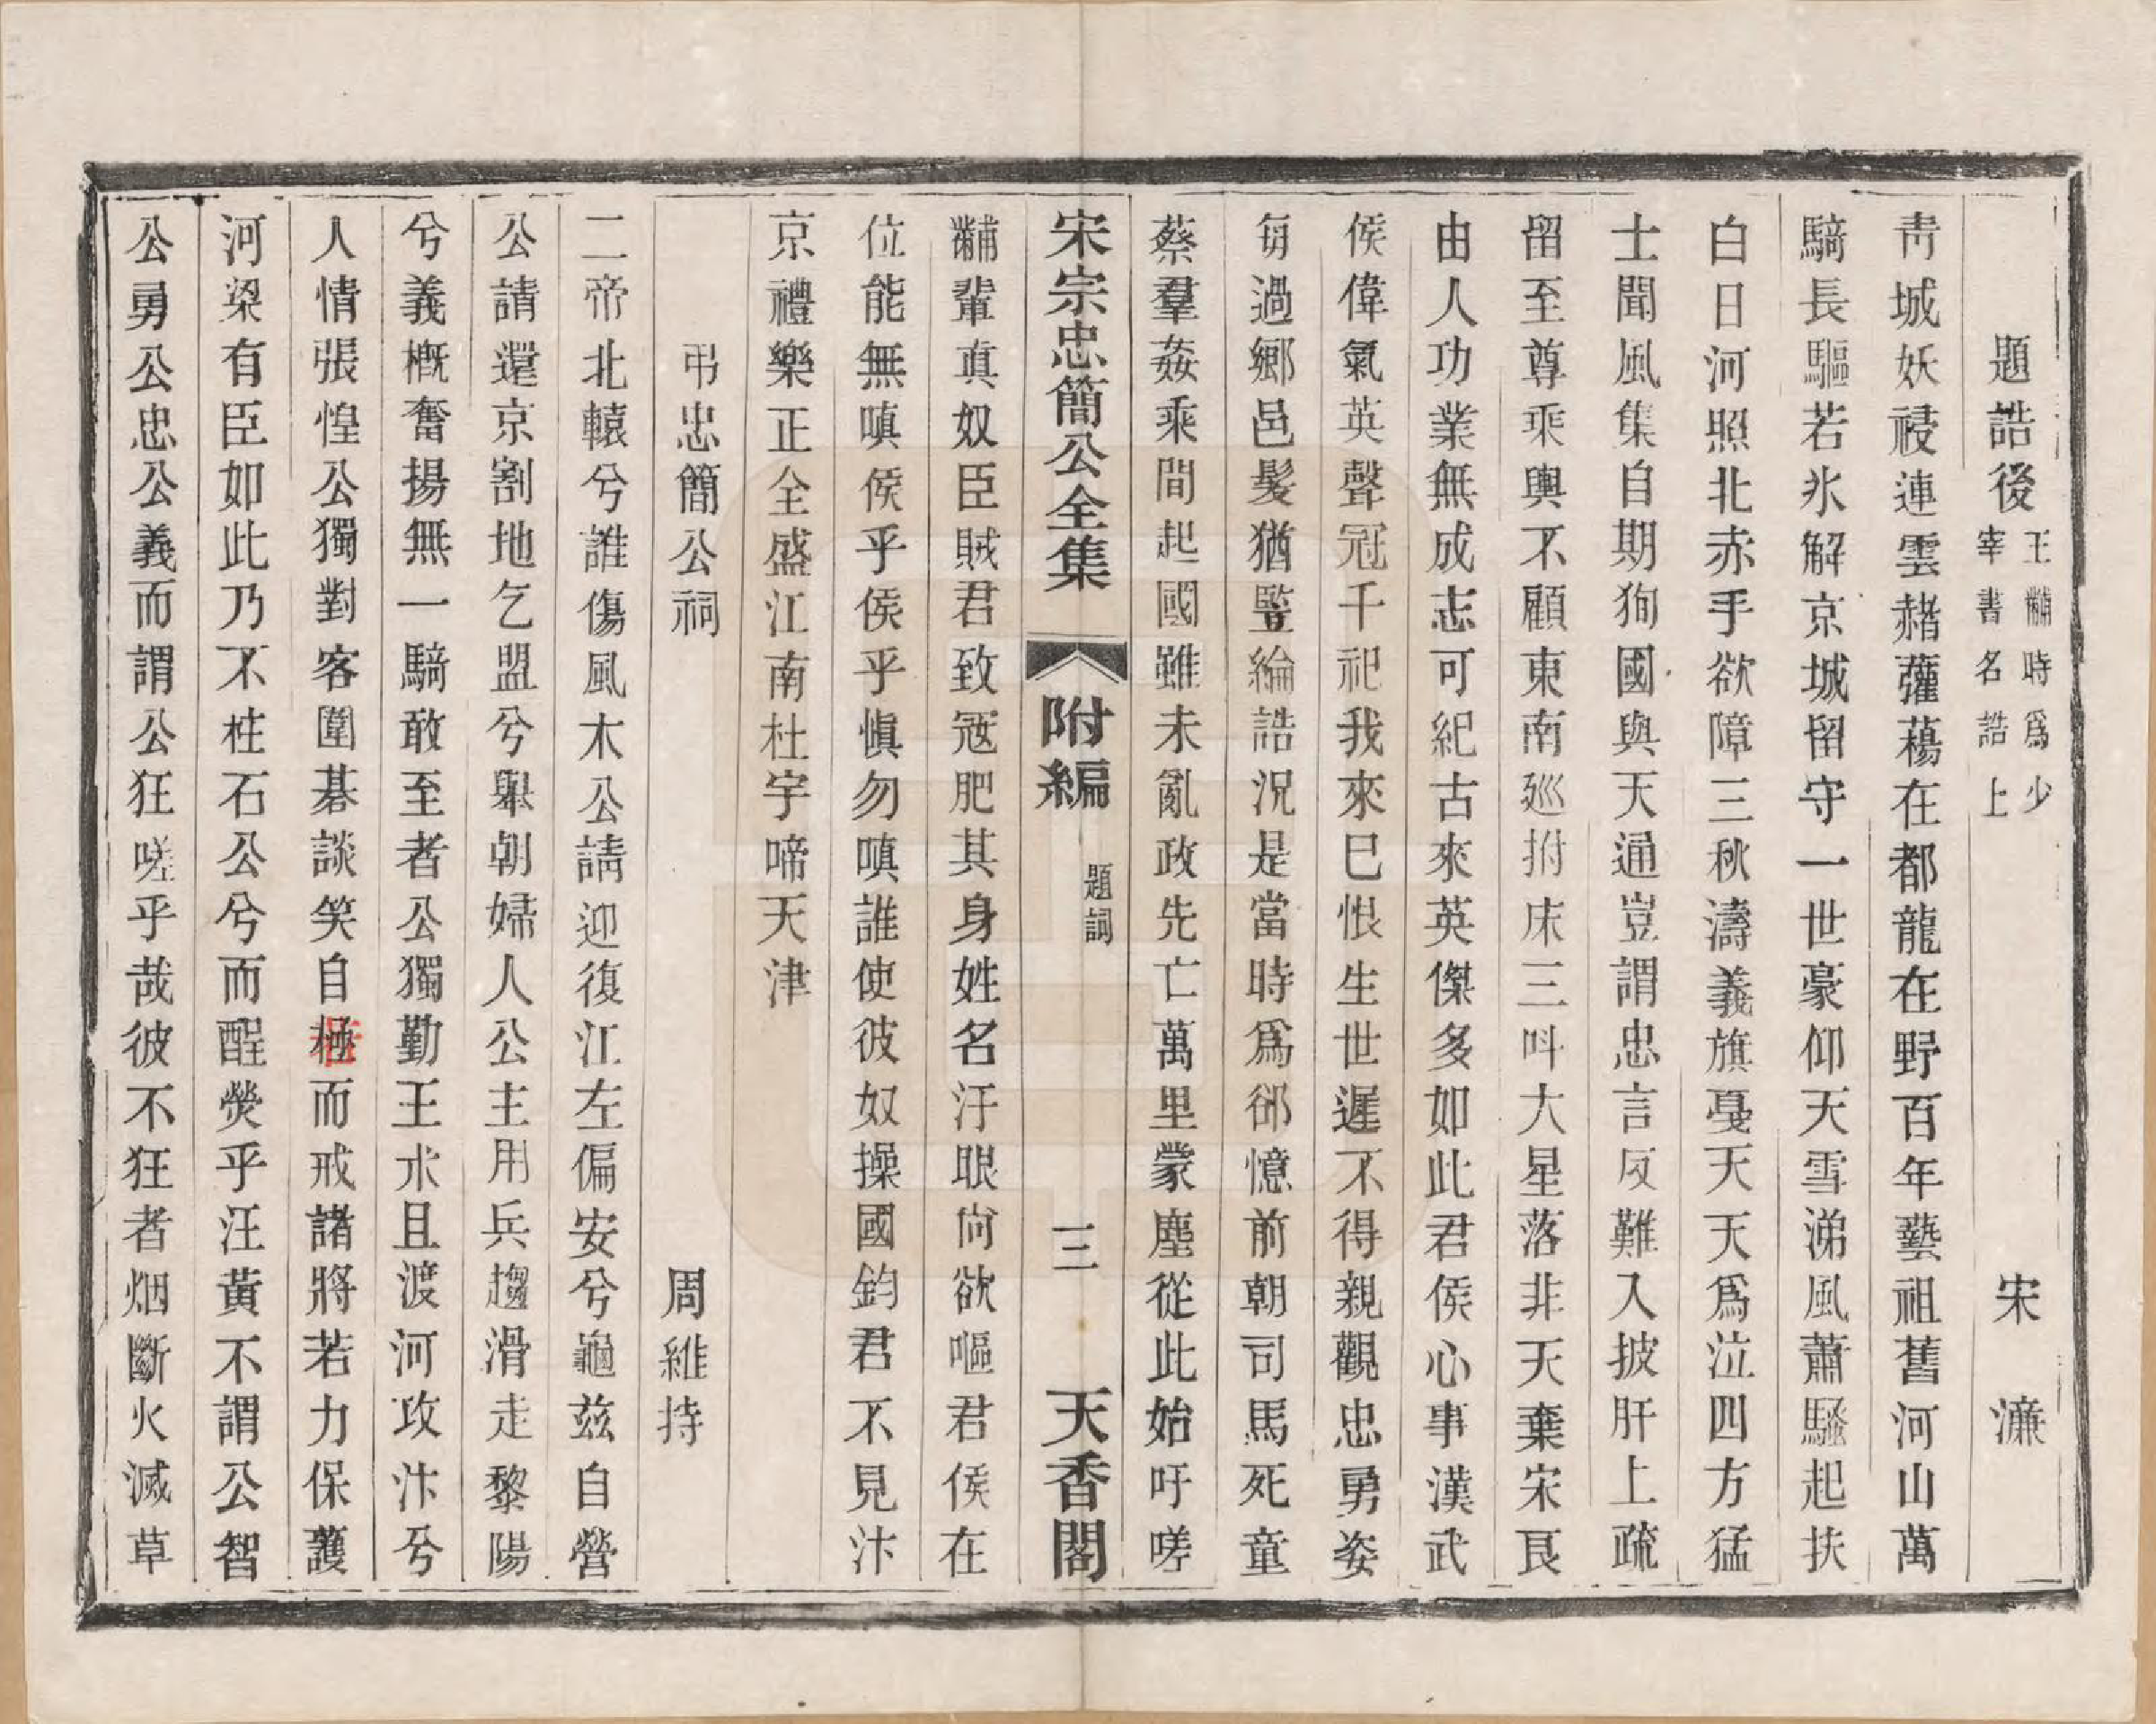 題誥後王黼時爲少宰書名誥上 宋濂
靑城妖祲連雲赭虇蘤在都龍在野百年藝祖舊河山萬
騎長驅若氷解京城留守一世豪仰天雪涕風蕭騷起扶
白日河照北赤手欲障三秋濤義旗戞天天爲泣四方猛
士聞風集自期狥國與天通豈謂忠言反難入披肝上疏
留至尊乘輿不顧東南廵拊床三呌大星落非天棄宋艮
由人功業無成志可紀古來英傑多如此君侯心事漢武
侯偉氣英聲冠千祀我來巳恨生世遲不得親觀忠勇姿
每過鄉邑髮猶豎綸誥況是當時爲郤憶前朝司馬死童
蔡羣姦乘間起國雖未亂政先亡萬里蒙塵從此始吁嗟
宋宗忠簡公全集 附編 題詞 三 天香閣
黼輩眞奴臣賊君致寇肥其身姓名汙眼尙欲嘔君侯在
位能無嗔侯乎侯乎愼勿嗔誰使彼奴操國鈞君不見汴
京禮樂正全盛江南杜宇啼天津
弔忠簡公祠 周維持
二帝北轅兮誰傷風木公請迎復江左偏安兮龜茲自營
公請還京割地乞盟兮舉朝婦人公主用兵趨滑走黎陽
兮義概奮揚無一騎敢至者公獨勤王朮且渡河攻汴兮
人情張惶公獨對客圍碁談笑自極而戒諸將若力保護
河梁有臣如此乃不柱石公兮而醒熒乎汪黃不謂公智
公勇公忠公義而謂公狂嗟乎哉彼不狂者烟斷火滅草